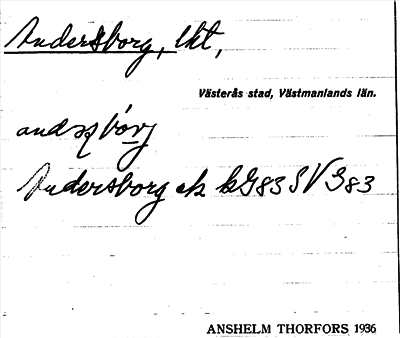 Andersborg, lht,
Västerås stad, Västmanlands län.
Andersborg ek bG83 SV G83
ANSHELM THORFORS 1936